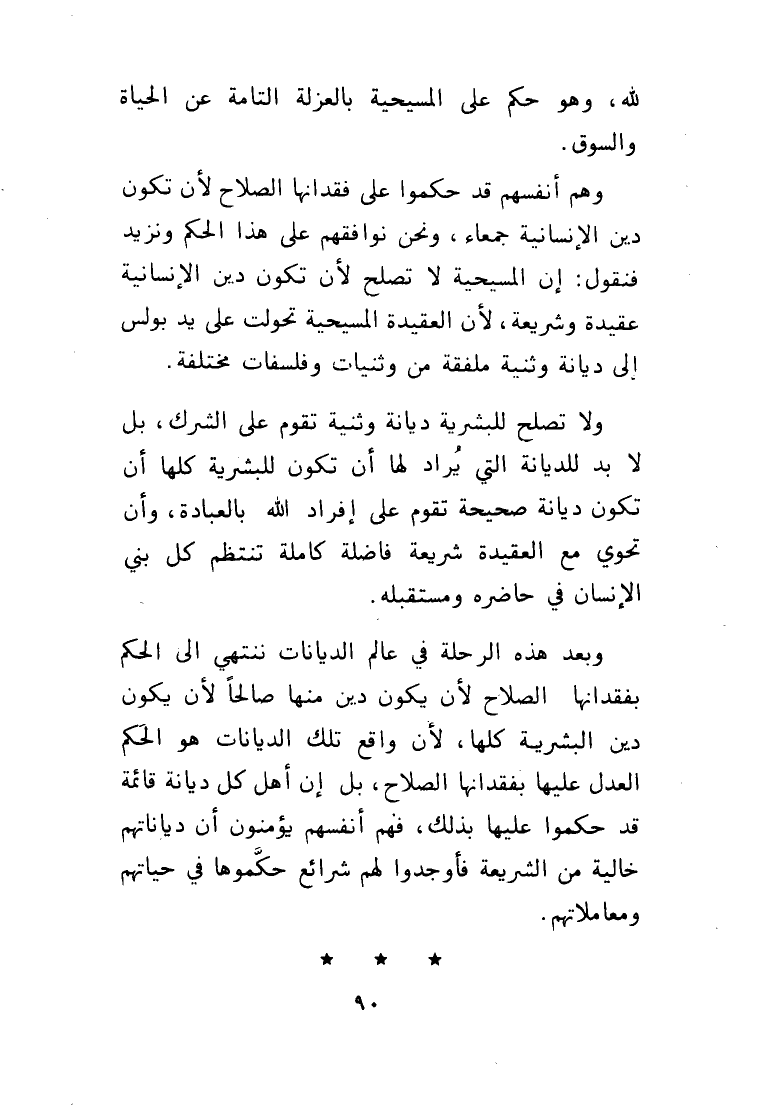 لله، وهو حكم على المسيحية بالعزلة التامة عن الحياة
والسوق.
وهم أنفسهم قد حكموا على فقدانها الصلاح لأن تكون
دين الإنسانية جمعاء، ونحن نوافقهم على هذا الحكم ونزيد
فنقول: إن المسيحية لا تصلح لأن تكون دين الإنسانية
عقيدة وشريعة، لأن العقيدة المسيحية تحولت على يد بولس
إلى ديانة وثنية ملفقة من وثنيات وفلسفات مختلفة.
ولا تصلح للبشرية ديانة وثنية تقوم على الشرك، بل
لا بد للديانة التي يُراد لها أن تكون للبشرية كلها أن
تكون ديانة صحيحة تقوم على إفراد الله بالعبادة، وأن
تحوي مع العقيدة شريعة فاضلة كاملة تنتظم كل بني
الإنسان في حاضره ومستقبله.
وبعد هذه الرحلة في عالم الديانات ننتهي الى الحكم
بفقدانها الصلاح لأن يكون دين منها صالحاً لأن يكون
دين البشرية كلها، لأن واقع تلك الديانات هو الحَكم
العدل عليها بفقدانها الصلاح، بل إن أهل كل ديانة قائمة
قد حكموا عليها بذلك، فهم أنفسهم يؤمنون أن دياناتهم
خالية من الشريعة فأوجدوا لهم شرائع حكَّموها في حياتهم
ومعاملاتهم.
★ ★ ★
٩٠